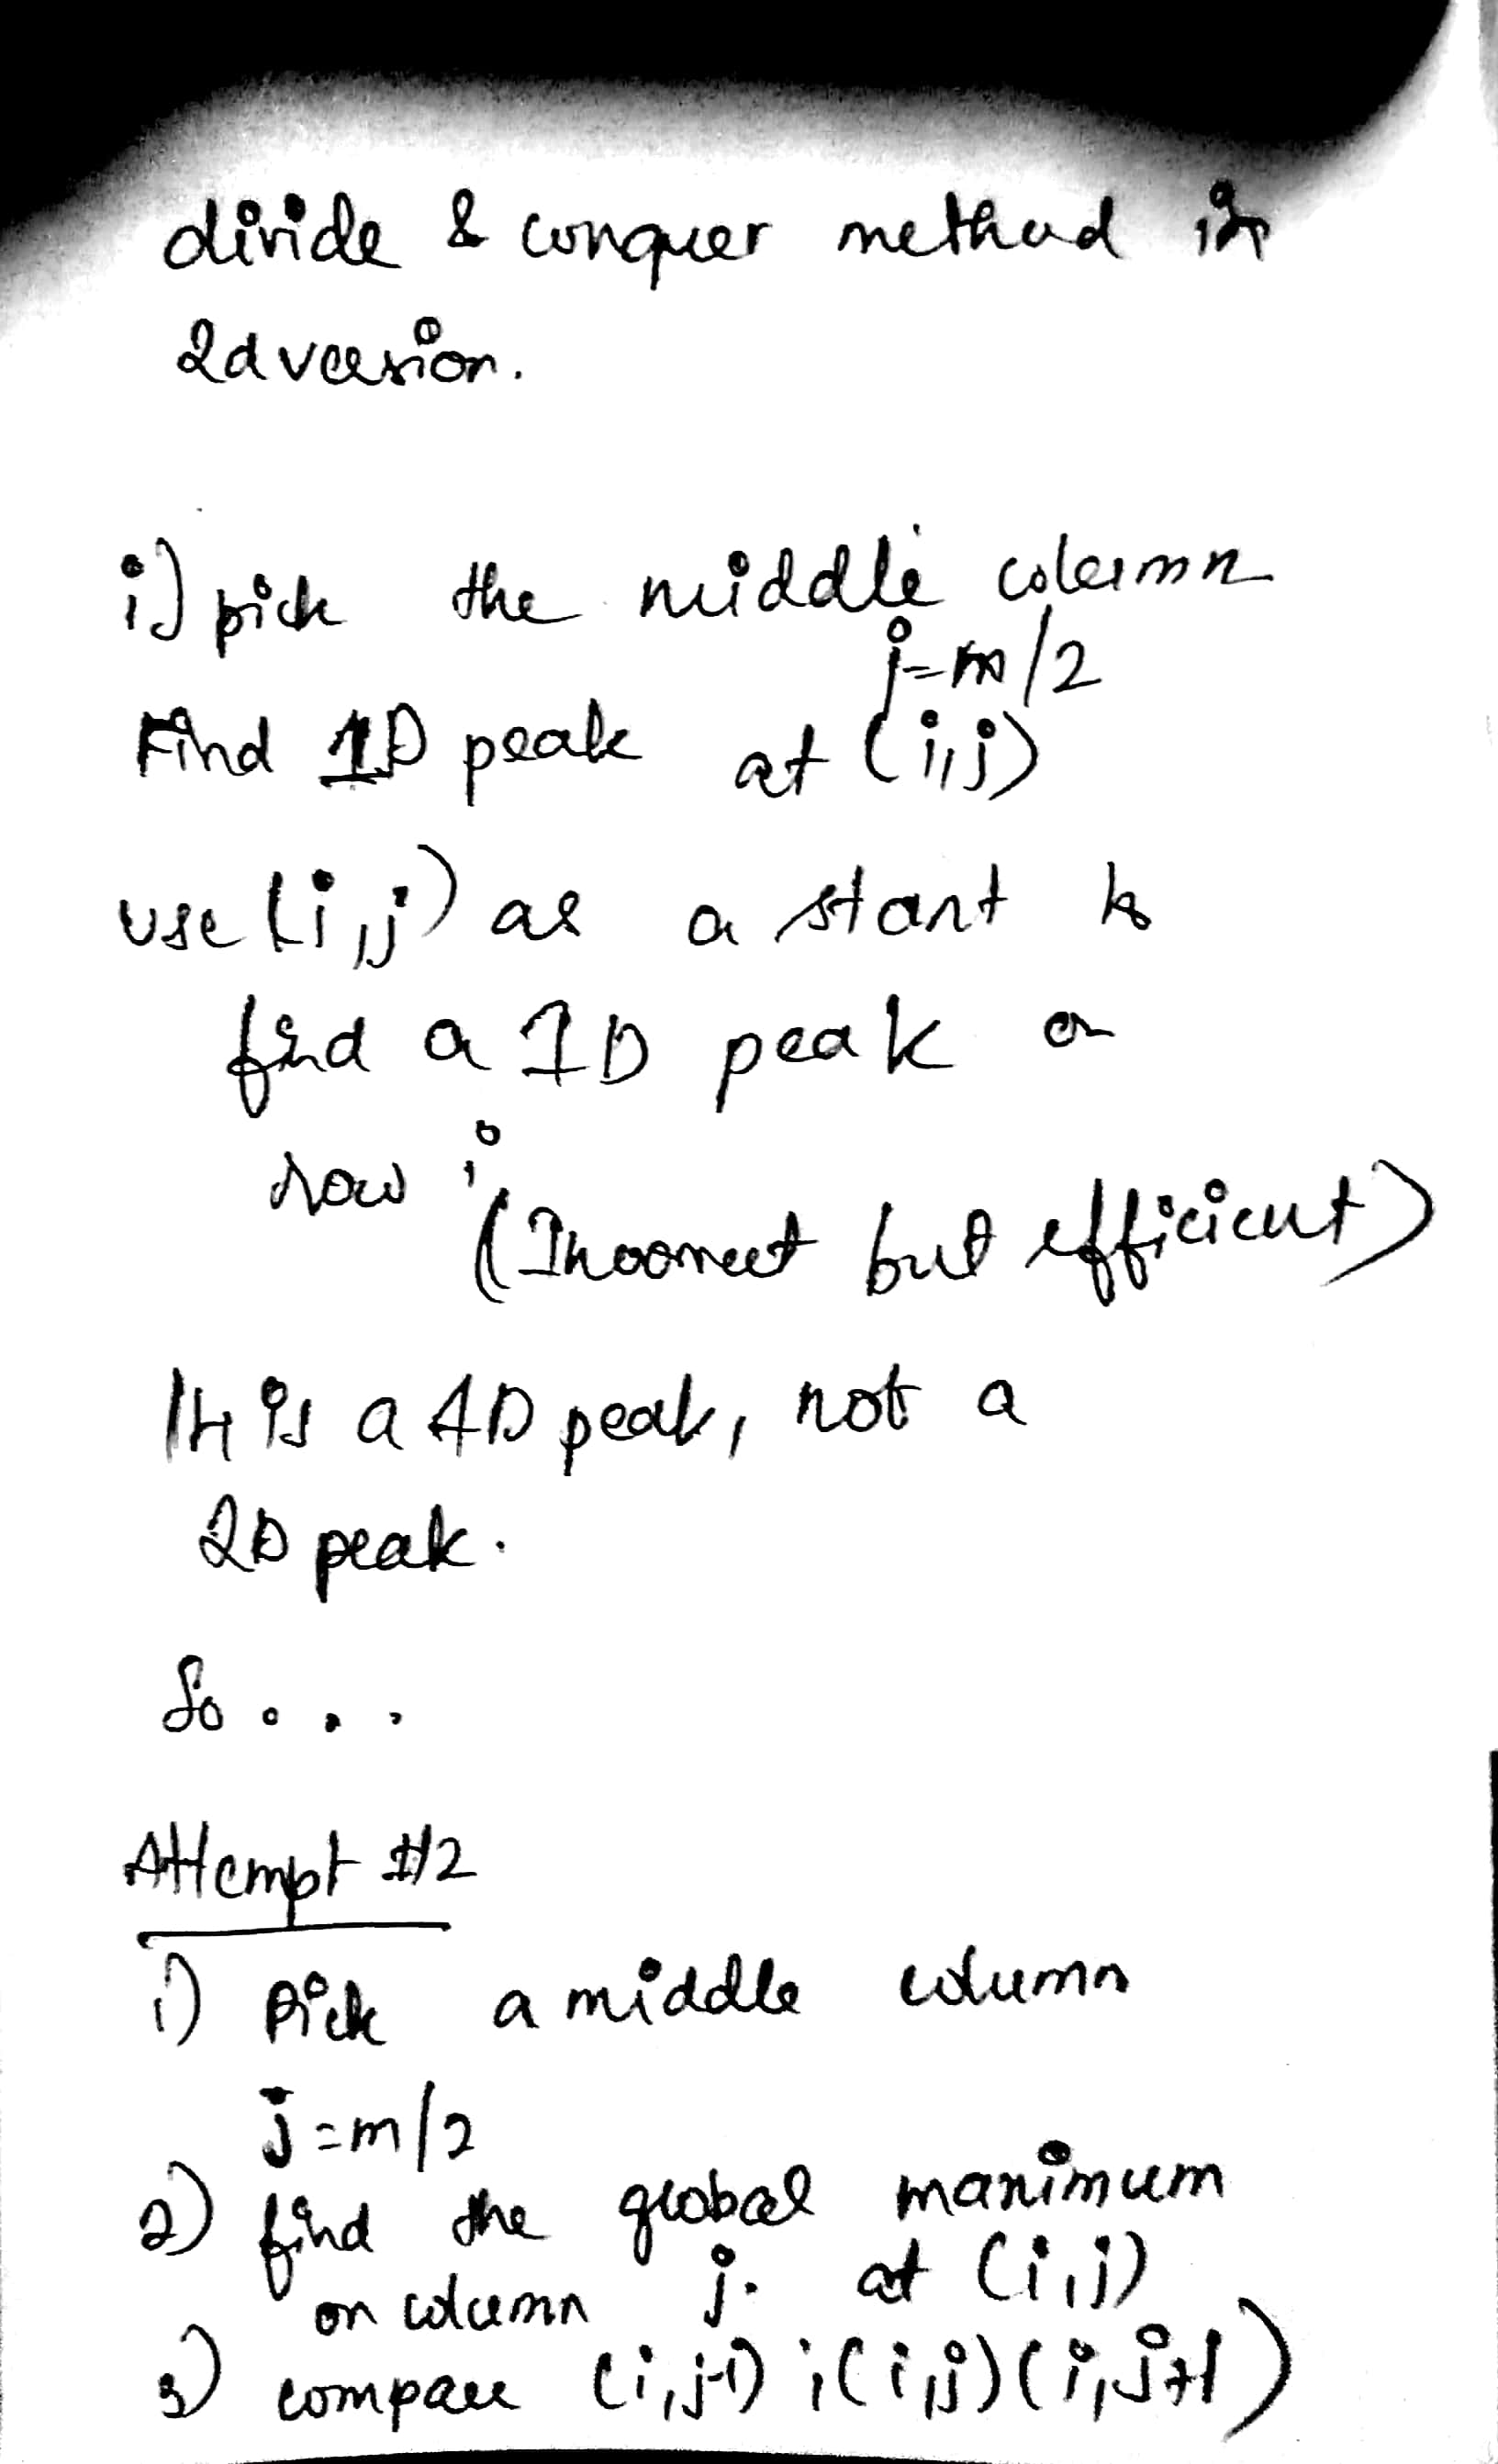 divide & conquer method in
2d version.
i) pick the middle column
j=m/2
Find 1D peak at (i,j)
use (i,j) as a start to
find a 1D peak on
row i
(Incorrect but efficient)
It is a 1D peak, not a
2D peak.
So...
Attempt #2
1) Pick a middle column
j=m/2
2) find the global maximum
on column j. at (i,j)
3) compare (i,j-1) ; (i,j) (i,j+1)